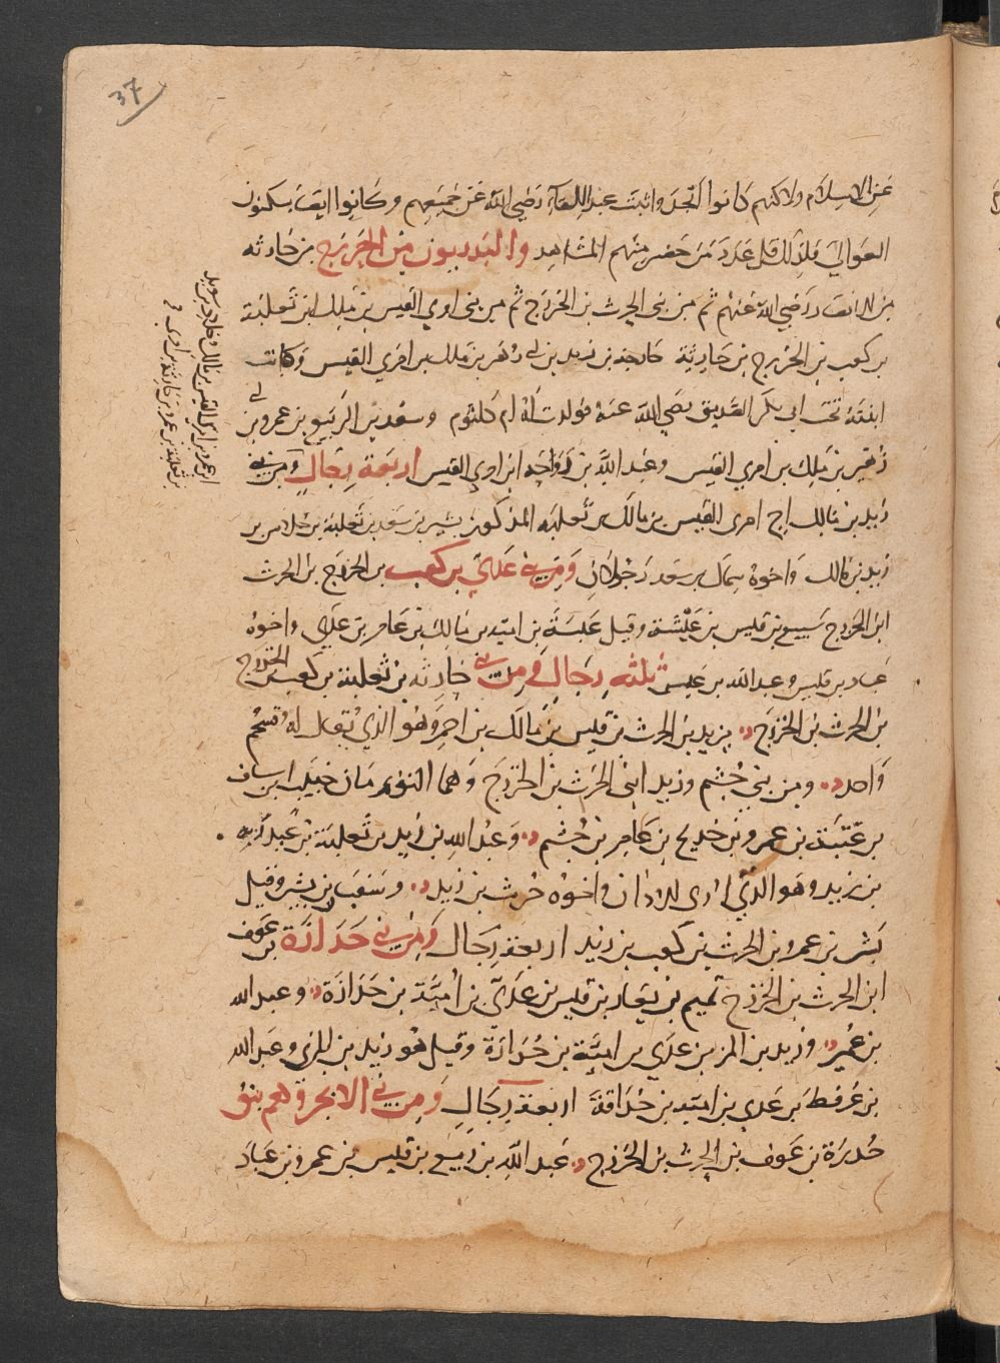 37
عن الاسلام ولاكنهم كانوا انجد واثبت عند اللقاء رضي الله عن جميعهم وكانوا ايضا يسكنون
العوالي فلذلك قل عدد من حضر منهم المشاهد والبدريون من الخزرج بن حارثه
من الانصار رضي الله عنهم ثم من بني الحرث بن الخزرج ثم من بني امري القيس بن ملك ابن ثعلبة
بن كعب بن الخزرج بن حارثة خارجة بن زيد بن ابي زهير بن ملك بن امري القيس وكانت
ابنته تحت ابي بكر الصديق رضي الله عنه فولدت له ام كلثوم وسعد بن الربيع بن عمرو بن ابي
زهير بن ملك بن امري القيس وعبد الله بن رواحه ابن امري القيس اربعة رجال ومن بني
زيد بن مالك اخ امرى القيس بن مالك بن ثعلبه المذكور بشير بن سعد بن ثعلبة بن خلاس بن
زيد بن مالك واخوه سماك بن سعد رجلان ومن بني عدي بن كعب بن الخزرج بن الحرث
ابن الخزرج سبيع بن قيس بن عيشة وقيل عبسة بن اميه بن مالك بن عامر بن عدي واخوه
عباد بن قيس وعبد الله بن عبس ثلثه رجال ومن بني حارثه بن ثعلبة بن كعب بن الخزرج
بن الحرث بن الخزرج يزيد بن الحرث بن قيس بن مالك بن احمر وهو الذي يقال له فسحم
واحد ومن بني جشم وزيد ابني الحرث بن الخزرج وهما التوءمان خبيب ابن يساف
بن عتبة بن عمرو بن خديج بن عامر بن جشم وعبد الله بن زيد بن ثعلبة بن عبد ربه
بن زيد وهو الذي ارى الاذان واخوه حرث بن زيد وسفين بن بشر وقيل
بشر بن عمرو بن الحرث بن كعب بن زيد اربعة رجال ومن بني جدارة بن عوف
ابن الحرث بن الخزرج تميم بن يعار بن قيس بن عدي بن امية بن جدارة وعبد الله
بن عمير وزيد بن المز بن عدي بن امية بن جدارة وقيل هو زيد بن المزي وعبد الله
بن عرفطة بن عدي بن اميه بن جدارة اربعة رجال ومن بني الابجر وهم بنو
خدرة بن عوف بن الحرث بن الخزرج عبد الله بن ربيع بن قيس بن عمرو بن عباد
ابن عمرو بن امري القيس بن مالك وخلاد بن سويد
بن ثعلبة بن عمرو بن حارثة بن امرى